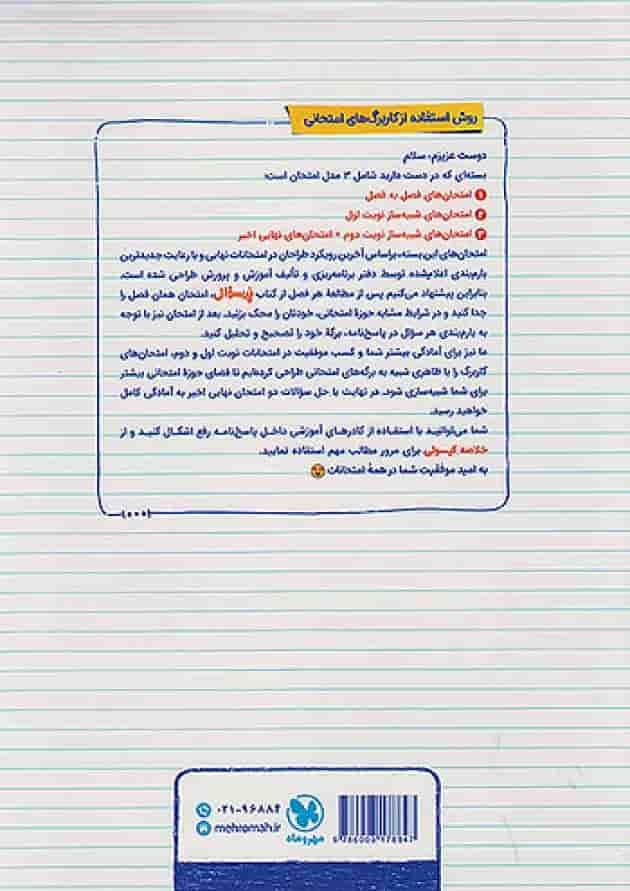 روش استفاده از کاربرگ‌های امتحانی
دوست عزیزم، سلام
بسته‌ای که در دست دارید شامل ۳ مدل امتحان است:
۱ امتحان‌های فصل به فصل
۲ امتحان‌های شبیه‌ساز نوبت اول
۳ امتحان‌های شبیه‌ساز نوبت دوم + امتحان‌های نهایی اخیر
امتحان‌های این بسته، براساس آخرین رویکرد طراحان در امتحانات نهایی و با رعایت جدیدترین
بارم‌بندی اعلام‌شده توسط دفتر برنامه‌ریزی و تألیف آموزش و پرورش طراحی شده است.
بنابراین پیشنهاد می‌کنیم پس از مطالعهٔ هر فصل از کتاب پُرسؤال، امتحان همان فصل را
جدا کنید و در شرایط مشابه حوزهٔ امتحانی، خودتان را محک بزنید. بعد از امتحان نیز با توجه
به بارم‌بندی هر سؤال در پاسخ‌نامه، برگهٔ خود را تصحیح و تحلیل کنید.
ما نیز برای آمادگی بیشتر شما و کسب موفقیت در امتحانات نوبت اول و دوم، امتحان‌های
کاربرگ را با ظاهری شبیه به برگه‌های امتحانی طراحی کرده‌ایم تا فضای حوزهٔ امتحانی بیشتر
برای شما شبیه‌سازی شود. در نهایت با حل سؤالات دو امتحان نهایی اخیر به آمادگی کامل
خواهید رسید.
شما می‌توانید با استفاده از کادرهای آموزشی داخل پاسخ‌نامه رفع اشکال کنید و از
خلاصه کپسولی برای مرور مطالب مهم استفاده نمایید.
به امید موفقیت شما در همهٔ امتحانات
۰۲۱-۹۶۸۸۴
mehromah.ir
مهروماه